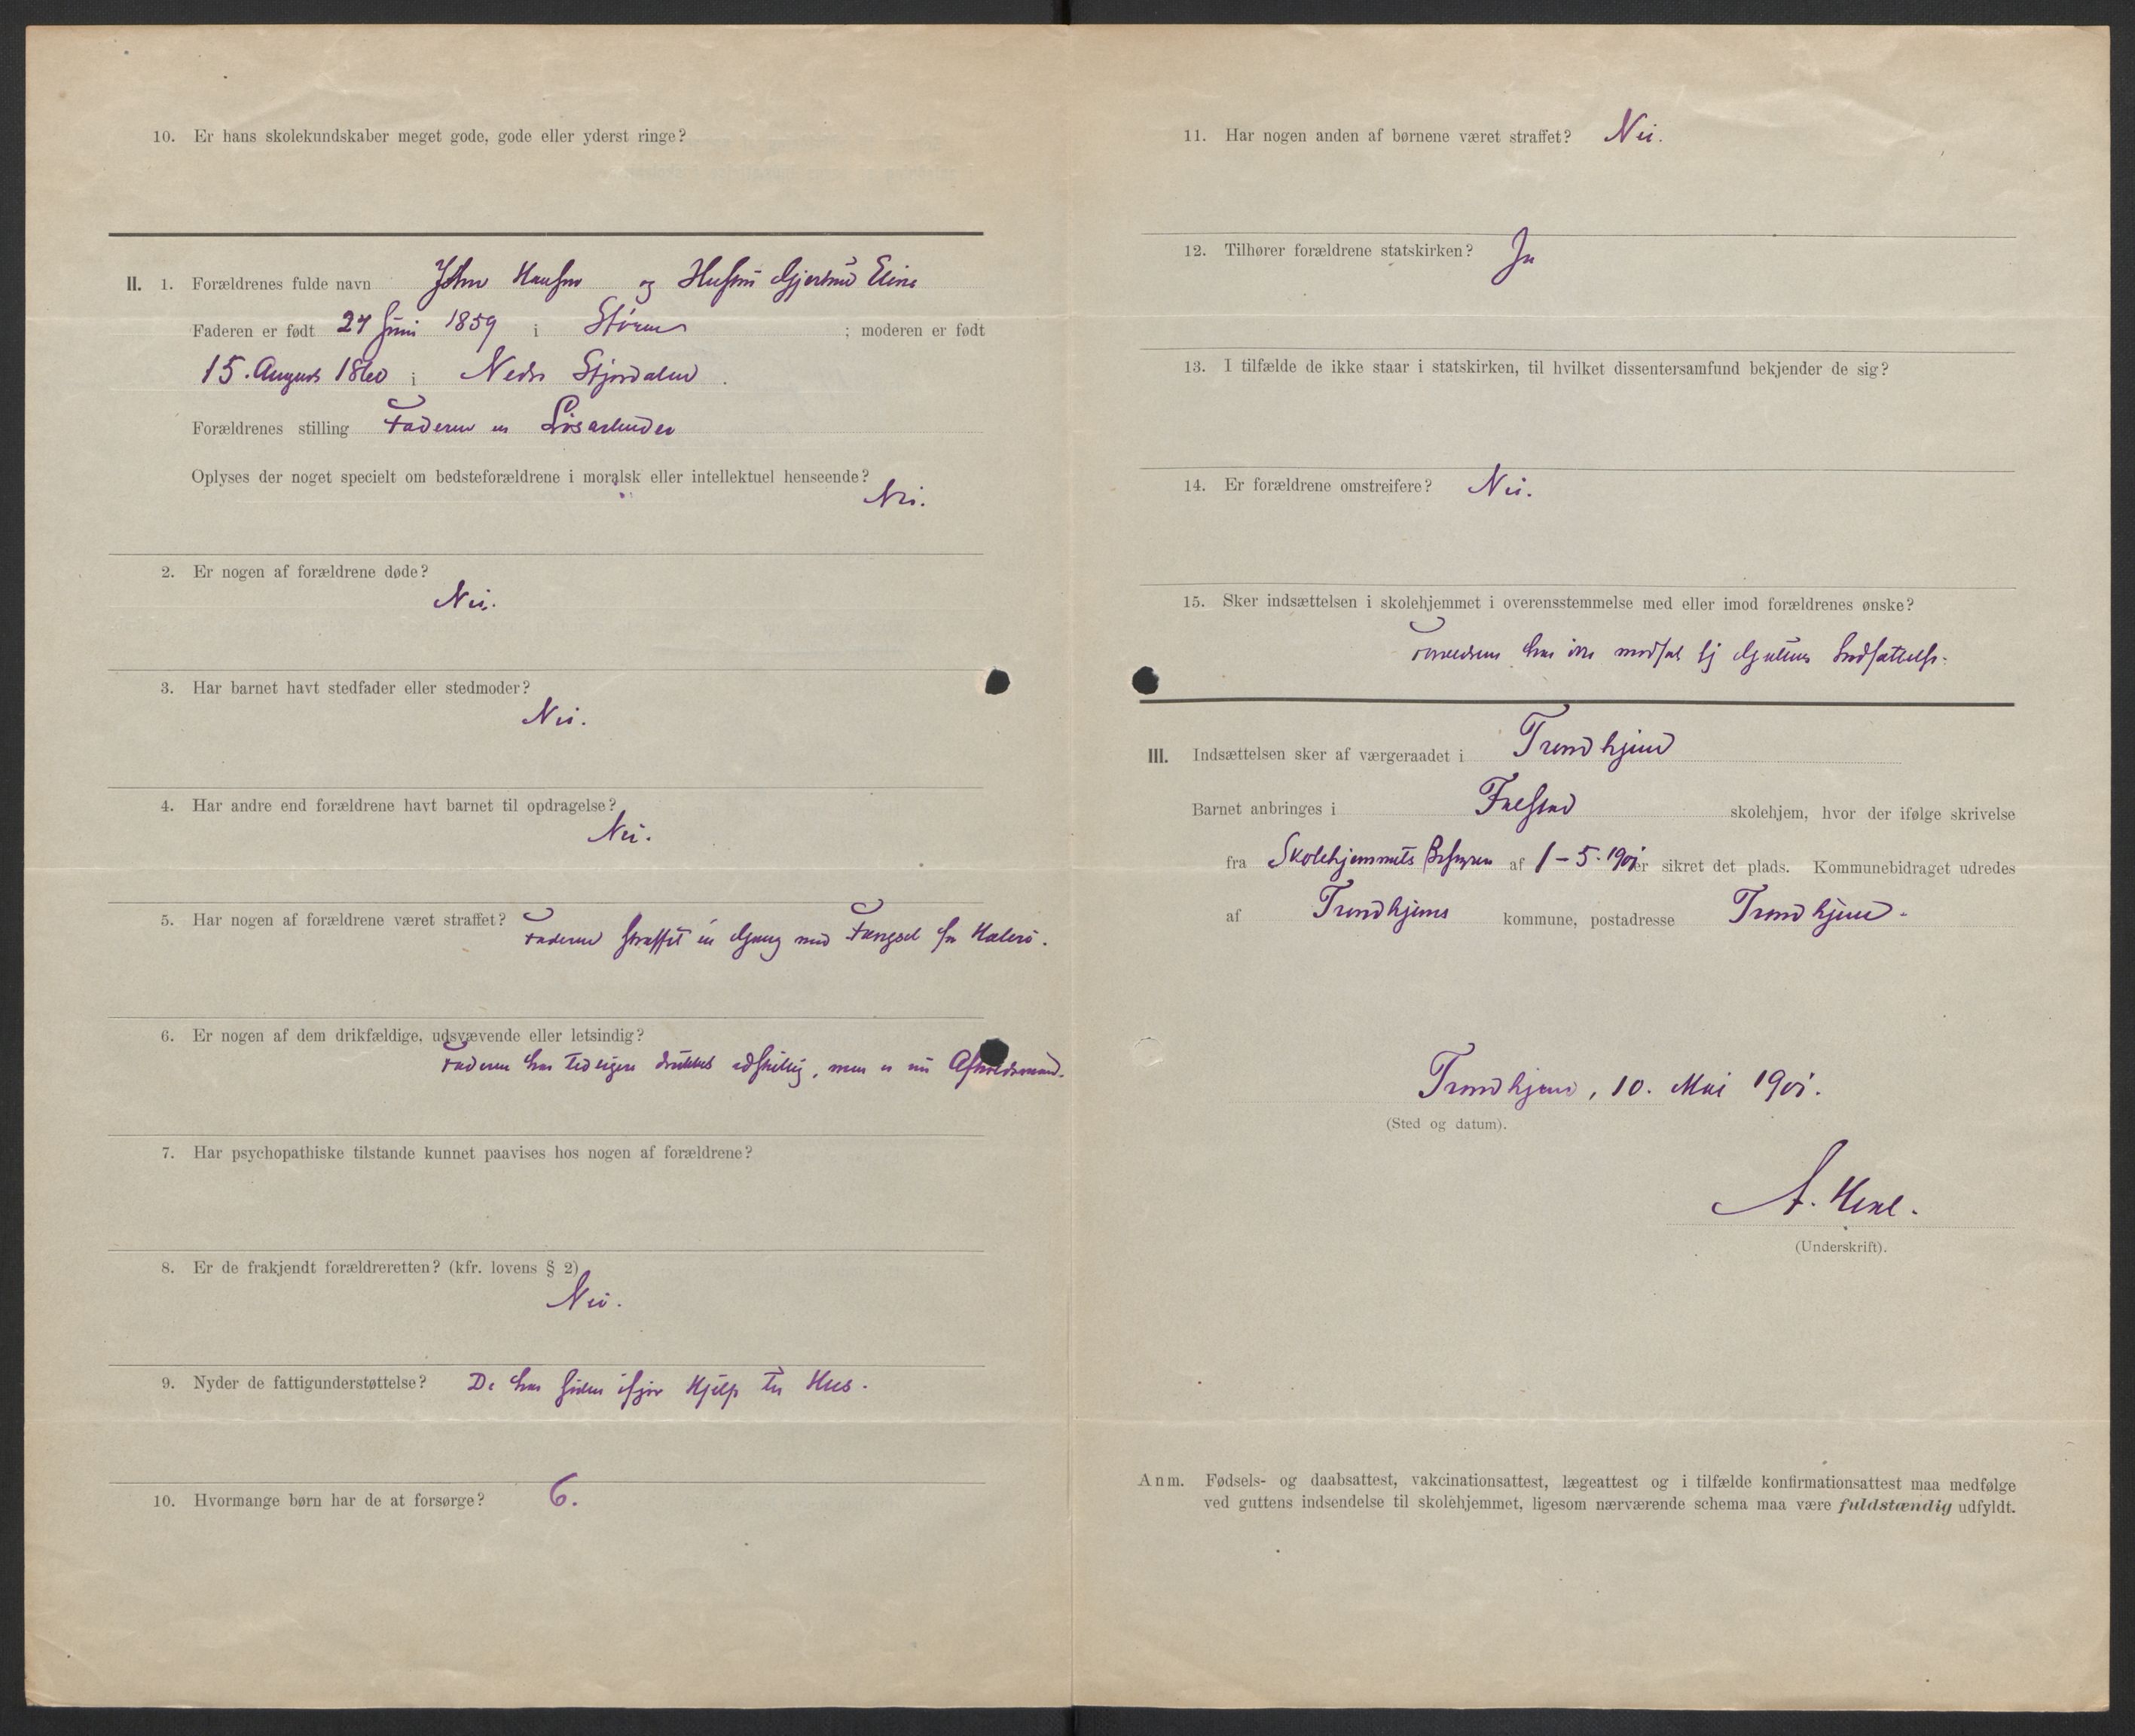 10. Er hans skolekundskaber meget gode, gode eller yderst ringe?
II. 1. Forældrenes fulde navn John Hansen og Hustru Gjertrud Eline
Faderen er født 27 Juni 1859 i Støren ; moderen er født
15. August 1860 i Nedre Stjørdalen.
Forældrenes stilling Faderen er Løsarbeider
Oplyses der noget specielt om bedsteforældrene i moralsk eller intellektuel henseende?
Nei.
2. Er nogen af forældrene døde?
Nei.
3. Har barnet havt stedfader eller stedmoder?
Nei.
4. Har andre end forældrene havt barnet til opdragelse?
Nei.
5. Har nogen af forældrene været straffet? Faderen straffet en Gang med Fængsel for Hæleri.
6. Er nogen af dem drikfældige, udsvævende eller letsindig?
Faderen har tidligere drukket adskillig, men er nu Afholdsmand.
7. Har psychopathiske tilstande kunnet paavises hos nogen af forældrene?
8. Er de frakjendt forældreretten? (kfr. lovens § 2)
Nei.
9. Nyder de fattigunderstøttelse? De har siden ifjor Hjelp til Hus.
10. Hvormange børn har de at forsørge? 6.
11. Har nogen anden af børnene været straffet? Nei.
12. Tilhører forældrene statskirken? Ja
13. I tilfælde de ikke staar i statskirken, til hvilket dissentersamfund bekjender de sig?
14. Er forældrene omstreifere? Nei.
15. Sker indsættelsen i skolehjemmet i overensstemmelse med eller imod forældrenes ønske?
Forældrene har ikke modsat sig Guttens Indsættelse.
III. Indsættelsen sker af værgeraadet i Trondhjem
Barnet anbringes i Falstad skolehjem, hvor der ifølge skrivelse
fra Skolehjemmets Bestyrer af 1-5-1901 er sikret det plads. Kommunebidraget udredes
af Trondhjems kommune, postadresse Trondhjem.
Trondhjem, 10. Mai 1901.
(Sted og datum).
A.
(Underskrift).
Anm. Fødsels- og daabsattest, vakcinationsattest, lægeattest og i tilfælde konfirmationsattest maa medfølge
ved guttens indsendelse til skolehjemmet, ligesom nærværende schema maa være fuldstændig udfyldt.